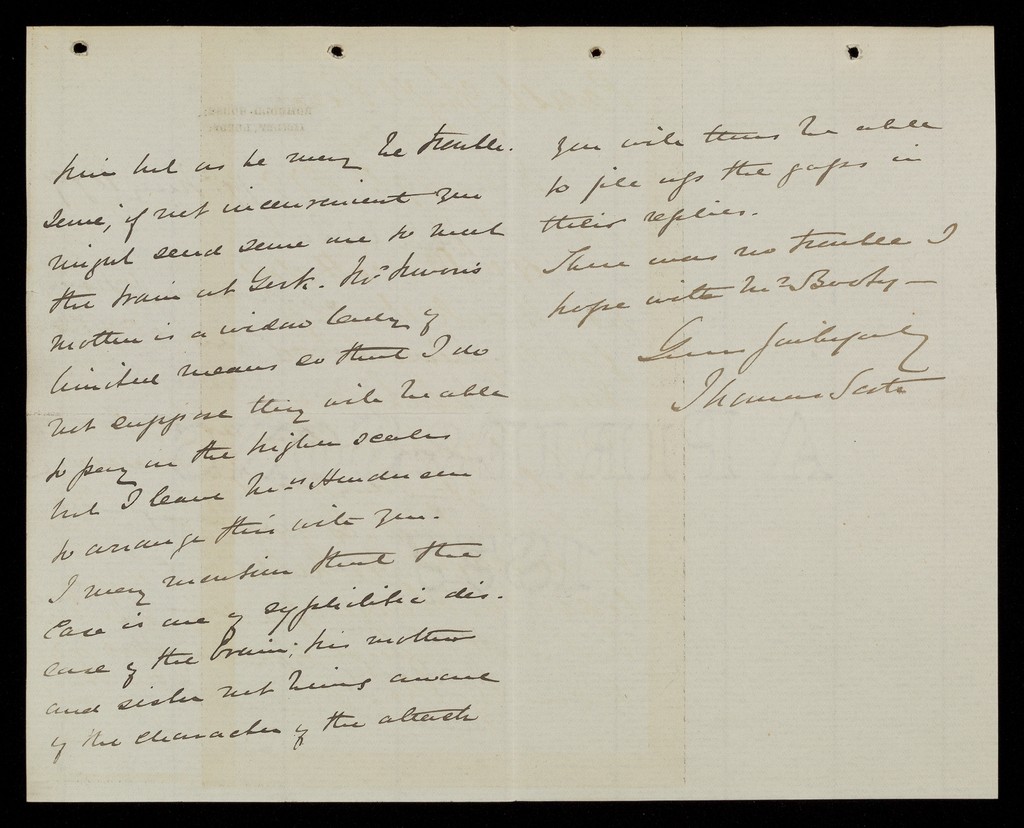 him but as he may be trouble-
some, if not inconvenient you
might send some one to meet
the train at York. Mr
mother is a widow lady of
limited means so that I do
not suppose they will be able
to pay on the higher scales
but I leave Mrs Henderson
to arrange this with you.
I may mention that the
case is one of syphilitic dis-
ease of the brain; his mother
and sister not being aware
of the character of the attack
you will thus be able
to fill up the gaps in
their replies.
There was no trouble I
hope with Mr Booty —
Yours faithfully
Thomas Scott